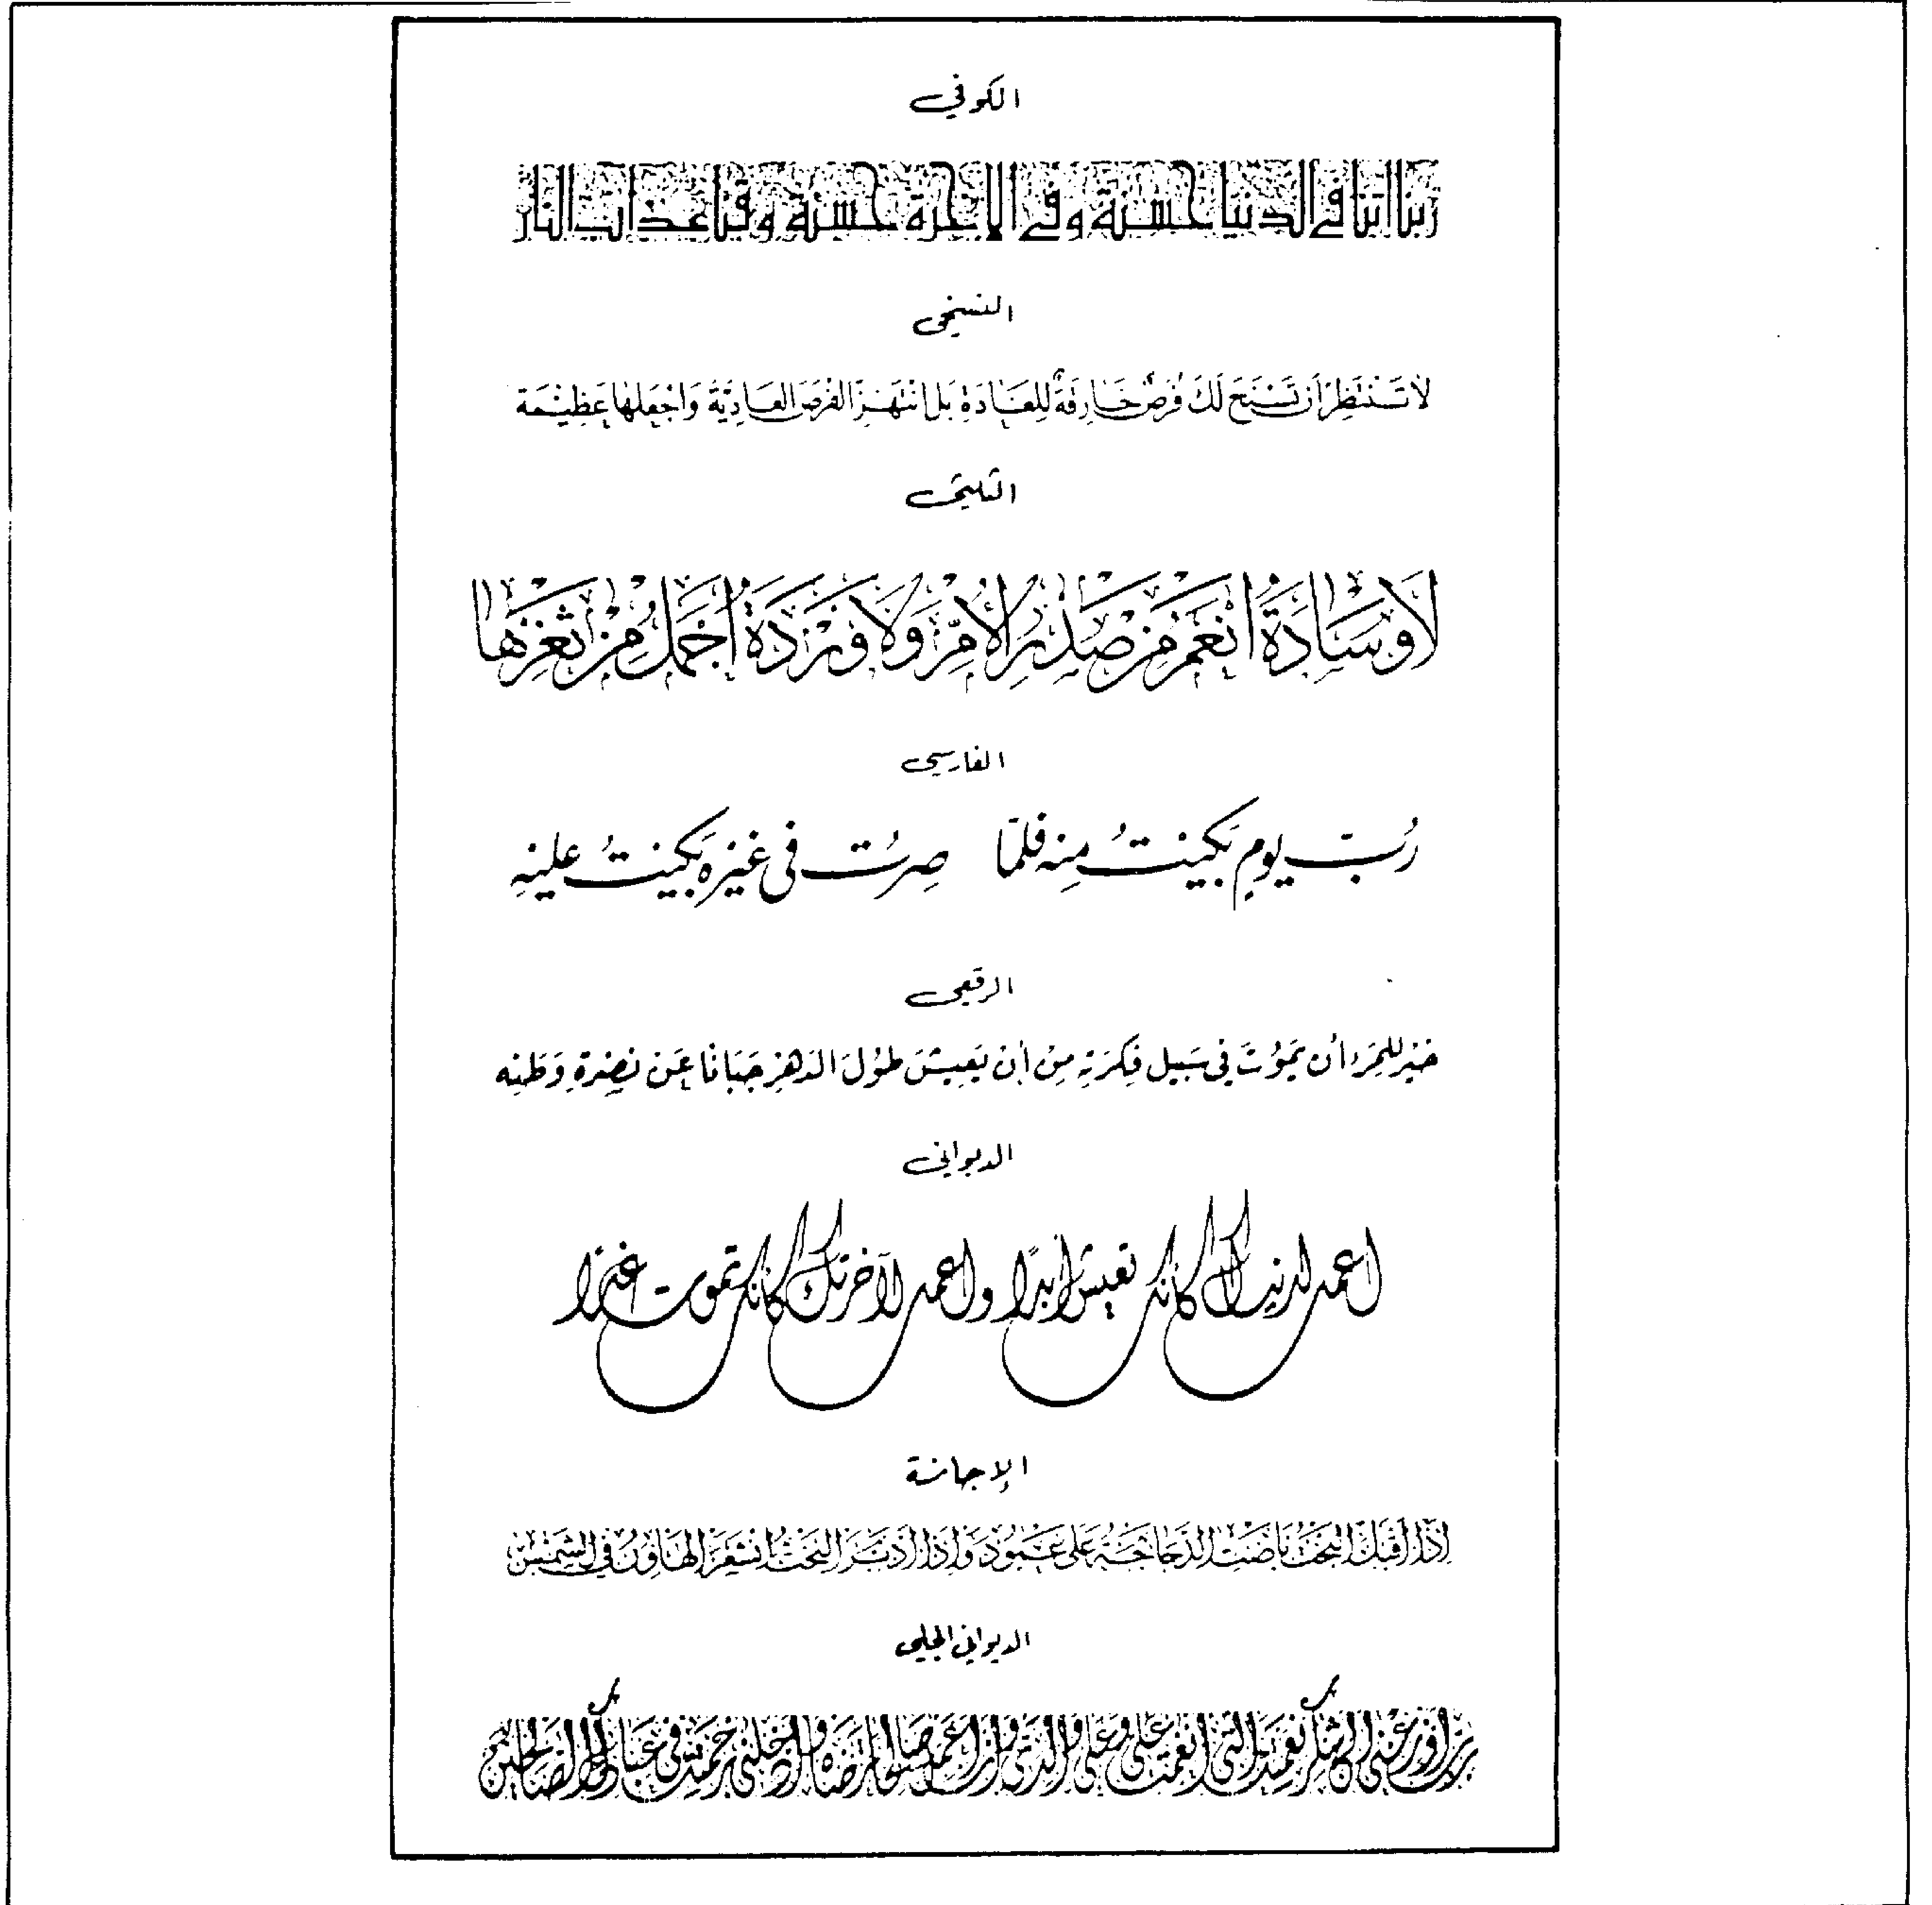 الكوفي
ربنا اتنا في الدنيا حسنة وفي الاخرة حسنة وقنا عذاب النار
النسخى
لَا تَنْتَظِرْ أَنْ تَسْنَحَ لَكَ فُرَصٌ خَارِقَةٌ لِلْعَادَةِ بَلِ انْتَهِزِ الْفُرَصَ الْعَادِيَّةَ وَاجْعَلْهَا عَظِيْمَة
الثلثى
لَا وِسَادَةَ أَنْعَمُ مِنْ صَدْرِ الْأُمِّ وَلَا وَرْدَةَ أَجْمَلُ مِنْ ثَغْرِهَا
الفارسى
رُبّ يومٍ بَكيتُ مِنه فلمّا صِرتُ فى غيرِهِ بَكيتُ عليهِ
الرقعى
خير للمرء أن يموت في سبيل فكرته من أن يعيش طول الدهر جبانا عن نصرة وطنه
الديوانى
اعمل لدنياك كانك تعيش ابدًا واعمل لآخرتك كانك تموت غدًا
الإجازة
إذا أقبل البخت باضت الدجاجة على عمود وإذا أدبر البخت انشقر الهاون في الشمس
الديواني الجلى
رب اوزعني ان اشكر نعمتك التي انعمت علي وعلى والدي وان اعمل صالحا ترضاه وادخلني برحمتك في عبادك الصالحين